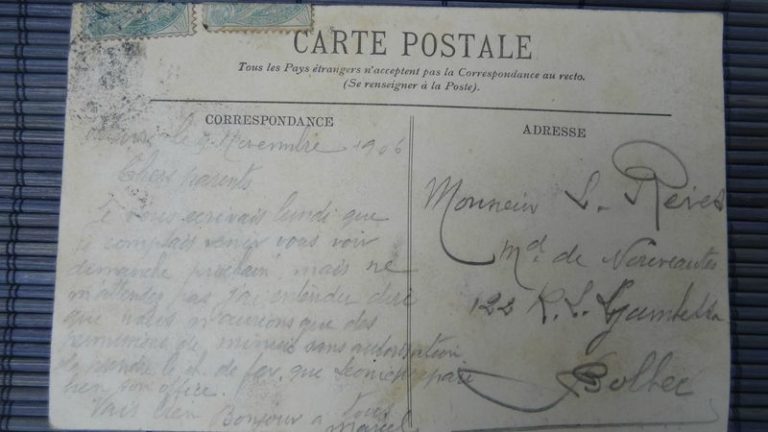 CARTE POSTALE
Tous les Pays étrangers n'acceptent pas la Correspondance au recto.
(Se renseigner à la Poste).
CORRESPONDANCE
le 9 Novembre 1906
Chers parents
Je vous ecrivais lundi que
je comptais venir vous voir
dimanche prochain, mais ne
m'attendez pas j'ai entendu dire
que nous n'aurions que des
permissions de minuit sans autorisation
de prendre le ch. de fer, que
bien son office.
Vais bien Bonjour a tous
Marcel
ADRESSE
Monsieur L.
Md. de Nouveautés
122 R. L. Gambetta
Bolbec